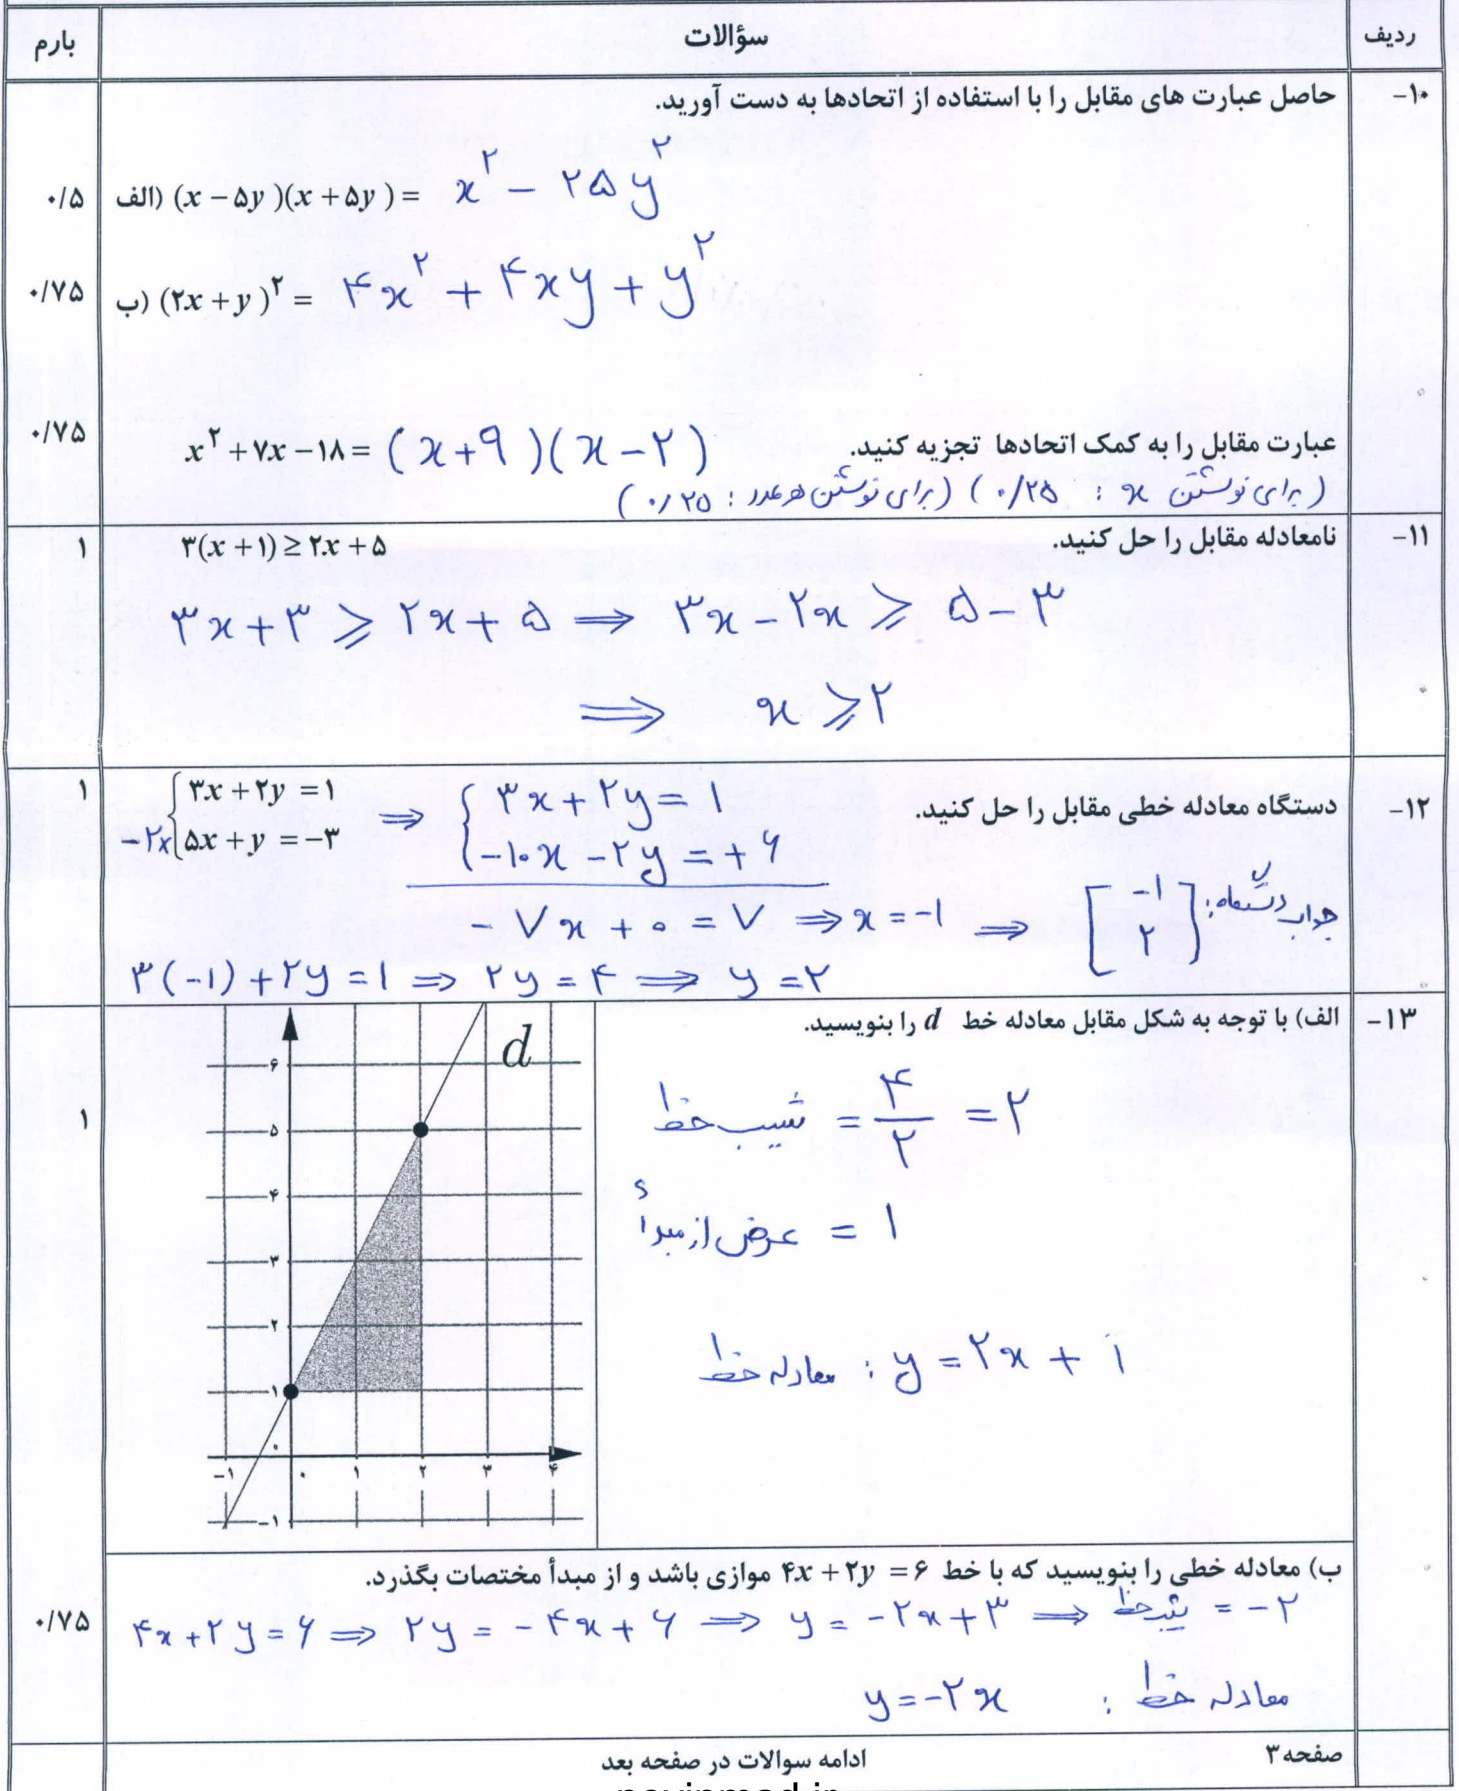 ردیف سؤالات بارم
۱۰- حاصل عبارت های مقابل را با استفاده از اتحادها به دست آورید.
الف) (x - ۵y)(x + ۵y) = x^۲ - ۲۵y^۲ ۰/۵
ب) (۲x + y)^۲ = ۴x^۲ + ۴xy + y^۲ ۰/۷۵
عبارت مقابل را به کمک اتحادها تجزیه کنید. x^۲ + ۷x - ۱۸ = (x+۹)(x-۲) ۰/۷۵
(برای نوشتن x : ۰/۲۵) (برای نوشتن هر عدد : ۰/۲۵)
۱۱- نامعادله مقابل را حل کنید. ۳(x + ۱) ≥ ۲x + ۵ ۱
۳x + ۳ ≥ ۲x + ۵ ⇒ ۳x - ۲x ≥ ۵ - ۳
⇒ x ≥ ۲
۱۲- دستگاه معادله خطی مقابل را حل کنید. ۱
{ ۳x + ۲y = ۱ ⇒ { ۳x + ۲y = ۱
-۲× { ۵x + y = -۳ { -۱۰x - ۲y = +۶
-۷x + ۰ = ۷ ⇒ x = -۱ ⇒ [-۱ ۲] جواب دستگاه:
۳(-۱) + ۲y = ۱ ⇒ ۲y = ۴ ⇒ y = ۲
۱۳- الف) با توجه به شکل مقابل معادله خط d را بنویسید. ۱
d
۶
۵
۴
۳
۲
۱
۰
-۱ ۰ ۱ ۲ ۳ ۴
-۱
شیب خط = ۴/۲ = ۲
عرض از مبدأ = ۱
معادله خط : y = ۲x + ۱
ب) معادله خطی را بنویسید که با خط ۴x + ۲y = ۶ موازی باشد و از مبدأ مختصات بگذرد.
۴x + ۲y = ۶ ⇒ ۲y = -۴x + ۶ ⇒ y = -۲x + ۳ ⇒ شیب خط = -۲ ۰/۷۵
معادله خط : y = -۲x
صفحه ۳ ادامه سوالات در صفحه بعد